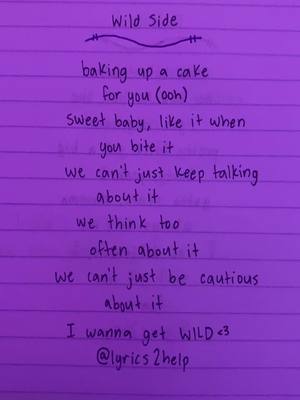 Wild Side
baking up a cake
for you (ooh)
sweet baby, like it when
you bite it
we can't just keep talking
about it
we think too
often about it
we can't just be cautious
about it
I wanna get WILD <3
@lyrics2help